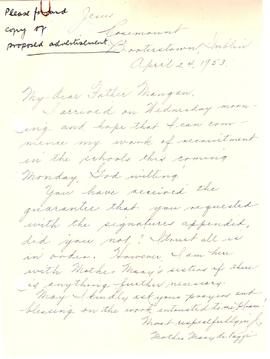 Please find
copy of
proposed advertisement
Jesus
Rosemount
Booterstown, Dublin
April 24, 1953.
My dear Father Mangan,
I arrived on Wednesday morn-
ing and hope that I can com-
mence my work of recruitment
in the schools this coming
Monday, God willing!
You have received the
guarantee that you requested
with the signatures appended,
did you not? I trust all is
in order. However I am here
with Mother Mary's sisters if there
is anything further necessary.
May I kindly ask your prayers and
blessing on the work entrusted to me, please!
Most respectfully in J.,
Mother Mary de